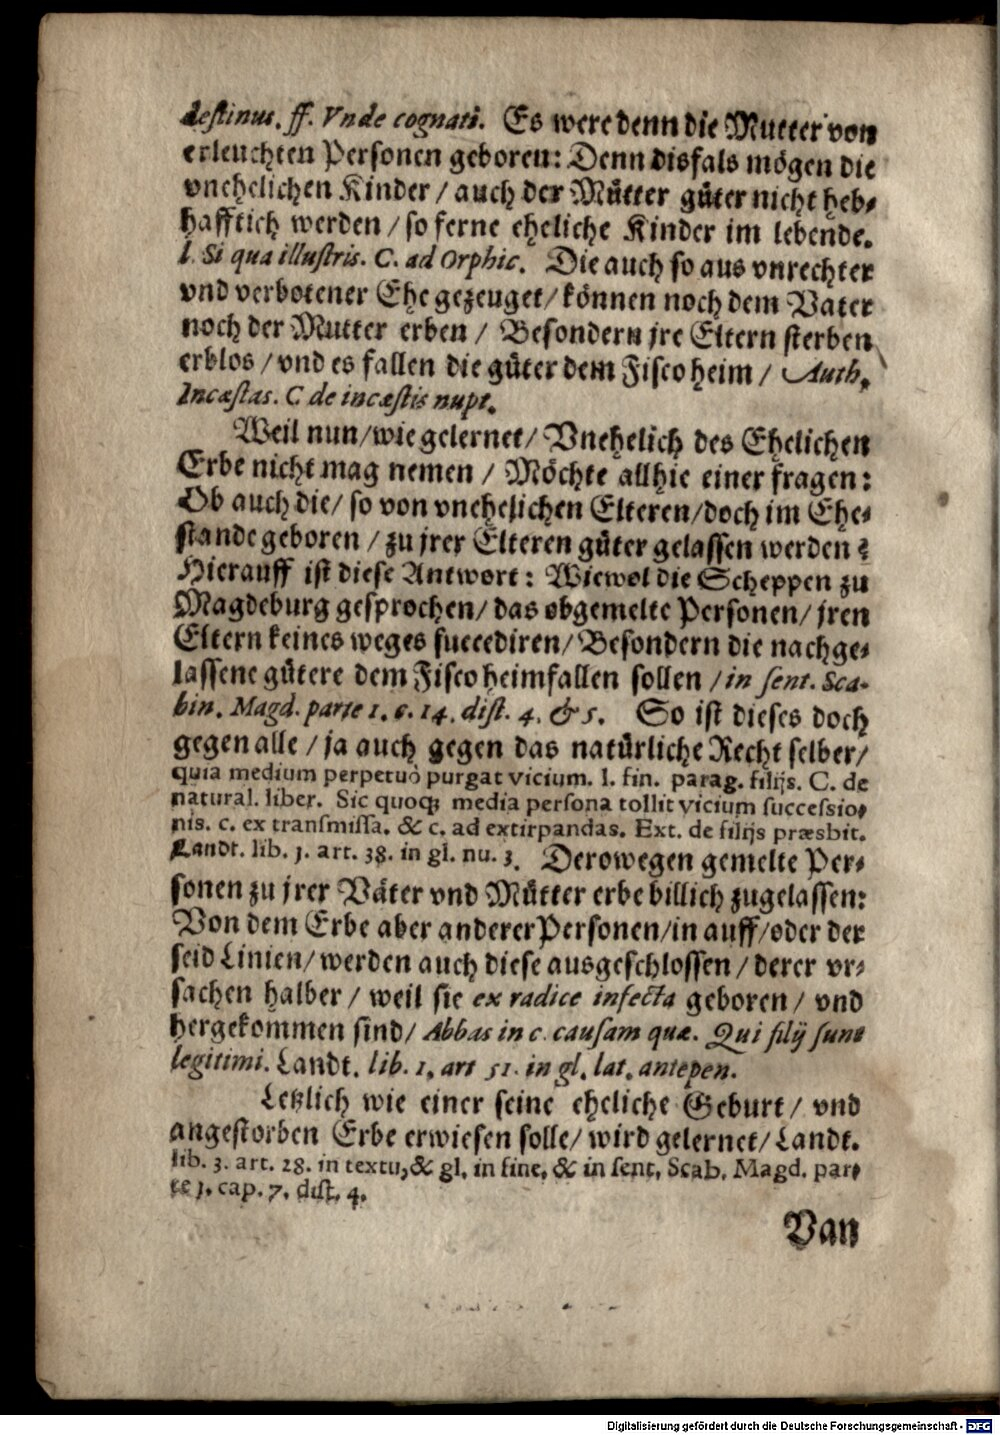 destinus. ff. Vnde cognati. Es were denn die Mutter von
erleuchten Personen geboren: Denn disfals mögen die
vnehelichen Kinder / auch der Mütter güter nicht heb⸗
hafftich werden / so ferne eheliche Kinder im lebende.
l. Si qua illustris. C. ad Orphic. Die auch so aus vnrechter
vnd verbotener Ehe gezeuget / können noch dem Vater
noch der Mutter erben / Besondern jre Eltern sterben
erblos / vnd es fallen die güter dem Fisco heim / Auth.
Incæstas. C de incæstis nupt.
Weil nun / wie gelernet / Vnehelich des Ehelichen
Erbe nicht mag nemen / Möchte allhie einer fragen:
Ob auch die / so von vnehelichen Elteren / doch im Ehe⸗
stande geboren / zu jrer Elteren güter gelassen werden?
Hierauff ist diese Antwort: Wiewol die Scheppen zu
Magdeburg gesprochen / das obgemelte Personen / jren
Eltern keines weges succediren / Besondern die nachge⸗
lassene gütere dem Fisco heimfallen sollen / in sent. Sca-
bin. Magd. parte 1. c. 14. dist. 4. & 5. So ist dieses doch
gegen alle / ja auch gegen das natürliche Recht selber /
quia medium perpetuò purgat vicium. l. fin. parag. filijs. C. de
natural. liber. Sic quoq; media persona tollit vicium successio⸗
nis. c. ex transmissa. & c. ad extirpandas. Ext. de filijs præsbit.
Landt. lib. 1. art. 38. in gl. nu. 3. Derowegen gemelte Per⸗
sonen zu jrer Väter vnd Mütter erbe billich zugelassen:
Von dem Erbe aber anderer Personen / in auff / oder der
seid Linien / werden auch diese ausgeschlossen / derer vr⸗
sachen halber / weil sie ex radice infecta geboren / vnd
hergekommen sind / Abbas in c. causam quæ. Qui filij sunt
legitimi. Landt. lib. 1. art 51. in gl. lat. antepen.
Letzlich wie einer seine eheliche Geburt / vnd
angestorben Erbe erwiesen solle / wird gelernet / Landt.
lib. 3. art. 28. in textu, & gl. in fine, & in sent. Scab. Magd. par⸗
te 1. cap. 7. dist. 4.
Van
Digitalisierung gefördert durch die Deutsche Forschungsgemeinschaft - DFG